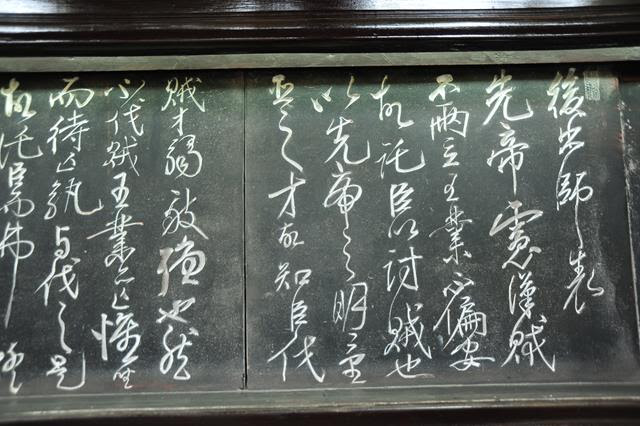 後出師表
先帝慮漢賊
不兩立王業不偏安
故託臣以討賊也
以先帝之明量
臣之才故知臣伐
賊才弱敵強也然
不伐賊王業亦亡惟坐
而待亡孰與伐之是
故託臣而弗疑